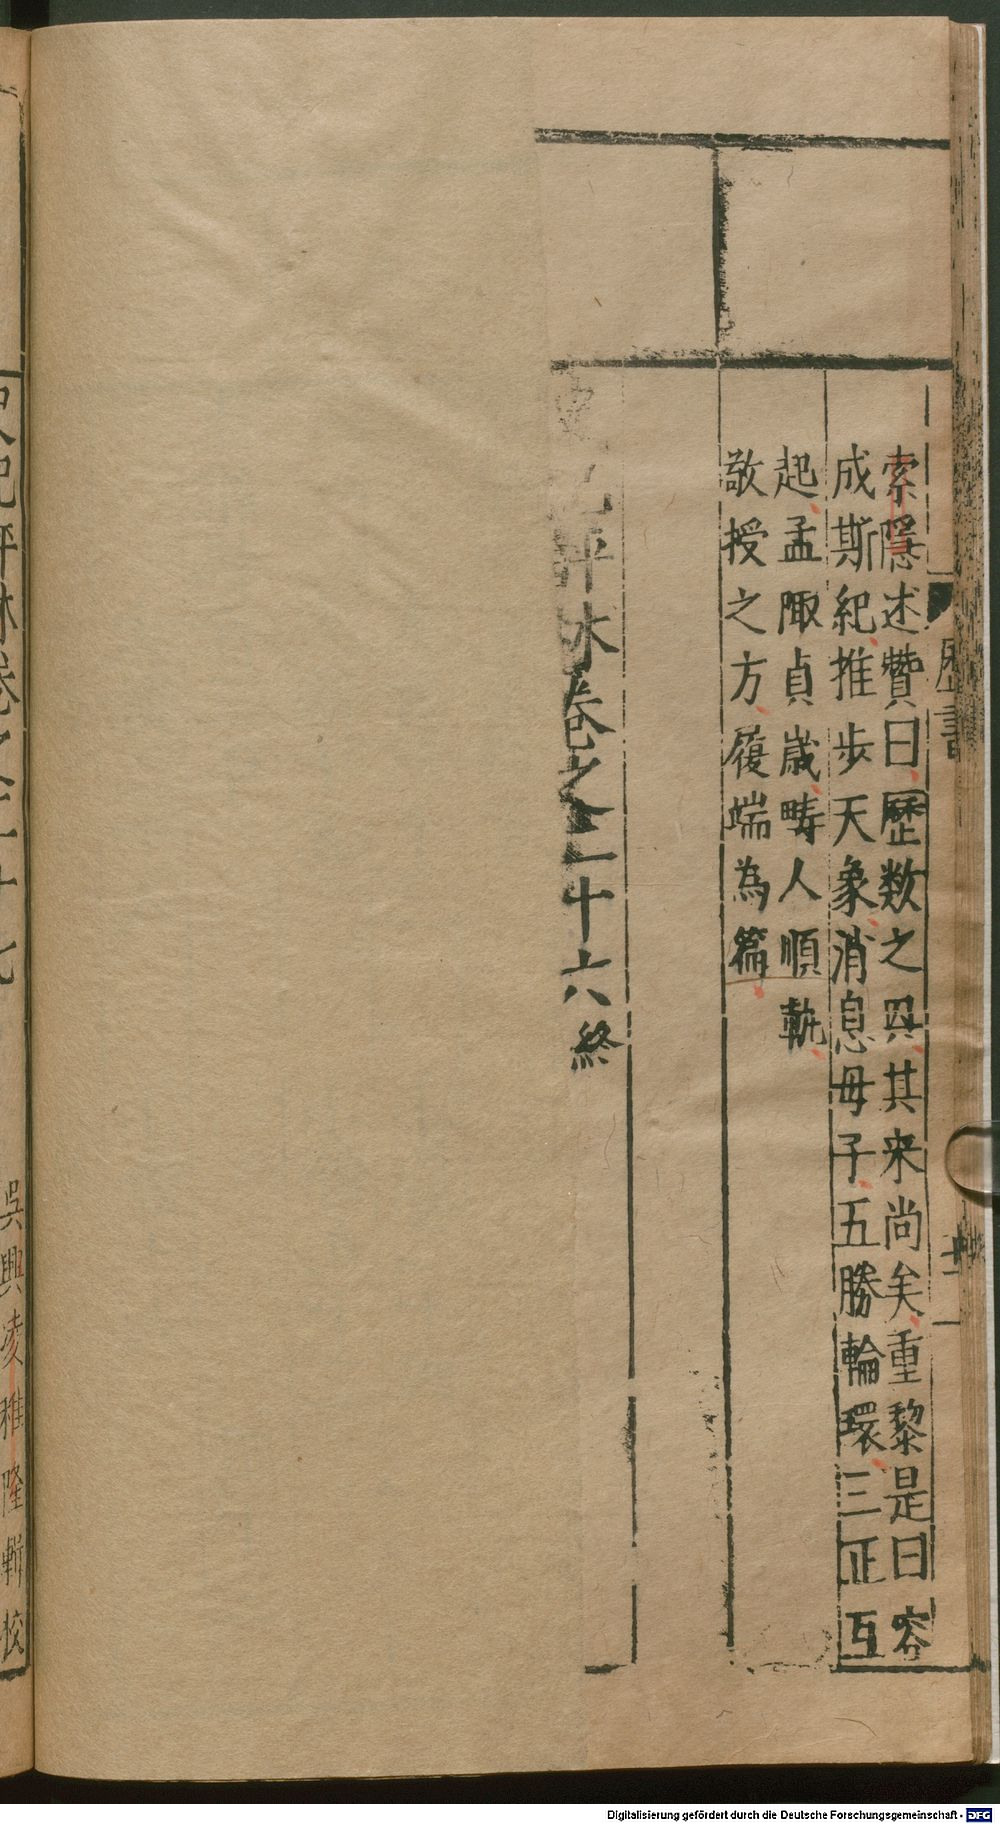 曆書
十一
索隱述贊曰歷数之興其来尚矣重黎是曰容
成斯紀推步天象消息母子五勝輪環三正互
起孟陬貞歲疇人順軌
敬授之方履端為篇
史記評林卷之二十六終
史記評林卷之二十七
吳興凌稚隆輯校
Digitalisierung gefördert durch die Deutsche Forschungsgemeinschaft - DFG